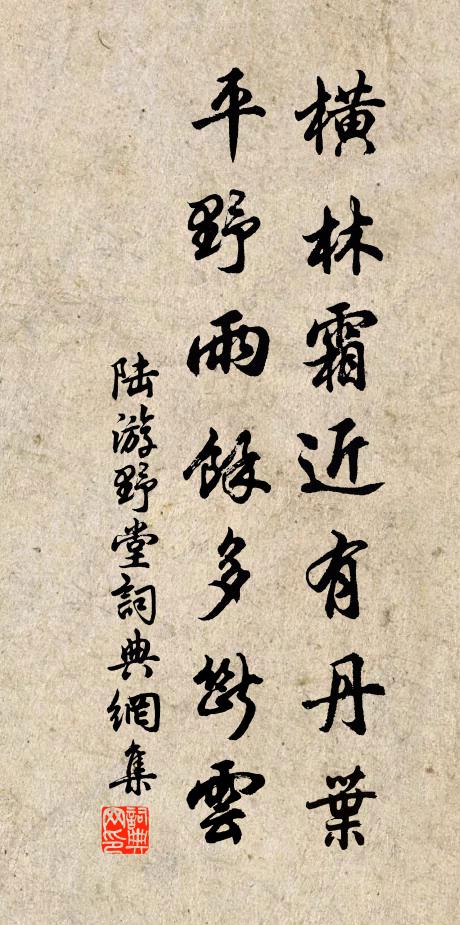 橫林霜近有丹葉
平野雨餘多斷雲
陸游野堂詞典網集
詞典
网印